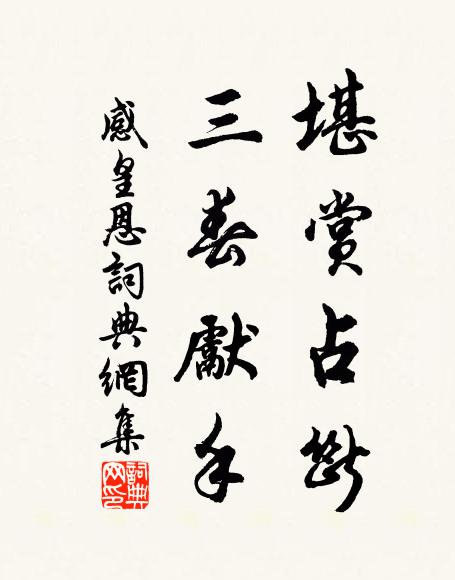 堪賞占斷
三春獻手
感皇恩詞典網集
詞典網印